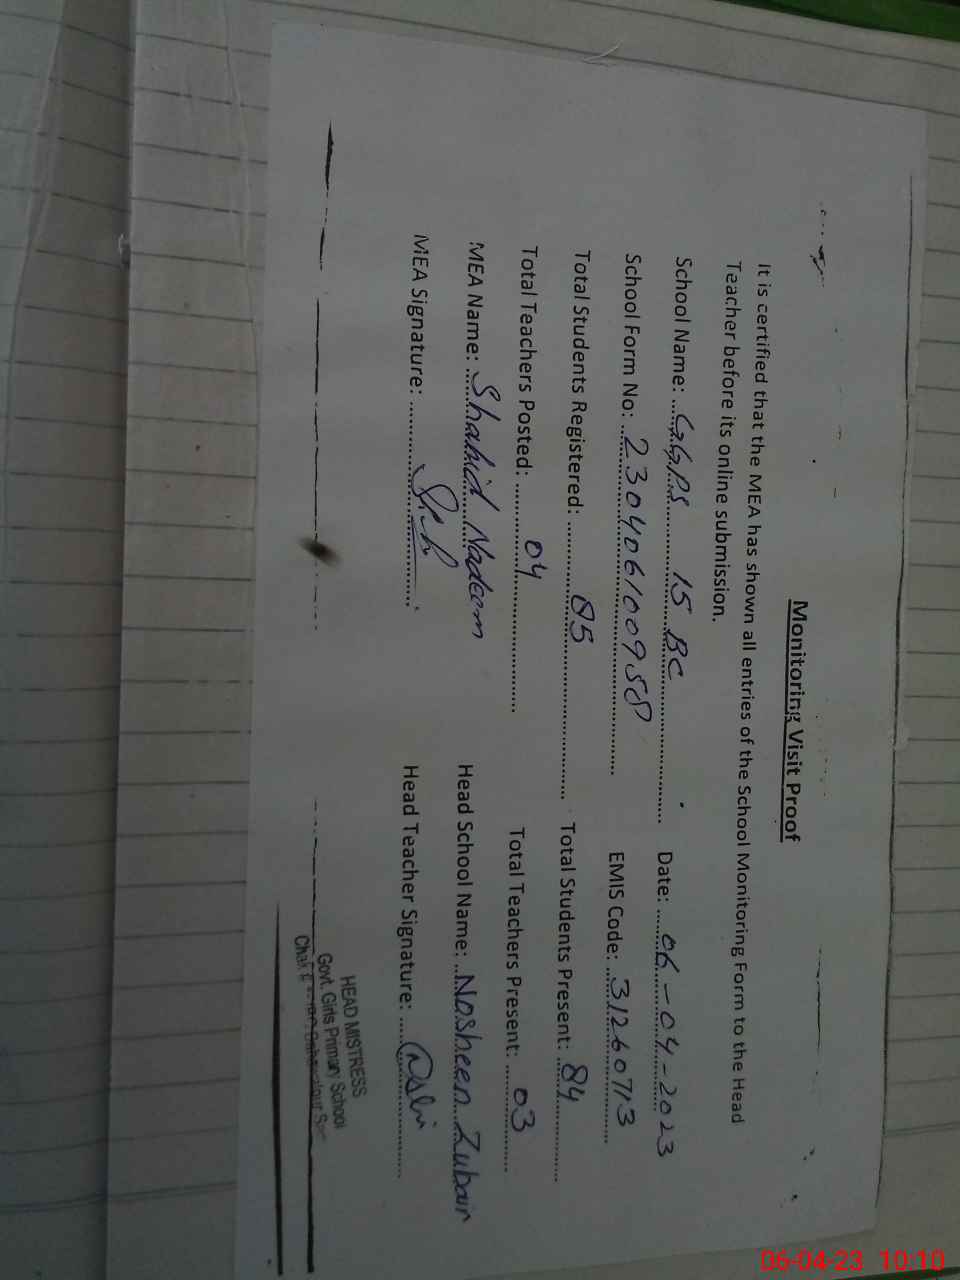 Monitoring Visit Proof
It is certified that the MEA has shown all entries of the School Monitoring Form to the Head
Teacher before its online submission.
School Name: GGPS 15 BC Date: 06-04-2023
School Form No: 230406100958 EMIS Code: 31260713
Total Students Registered: 85 Total Students Present: 84
Total Teachers Posted: 04 Total Teachers Present: 03
MEA Name: Shahid Nadeem Head School Name: Nosheen Zubair
MEA Signature: Head Teacher Signature:
HEAD MISTRESS
Govt. Girls Primary School
06-04-23 10:10